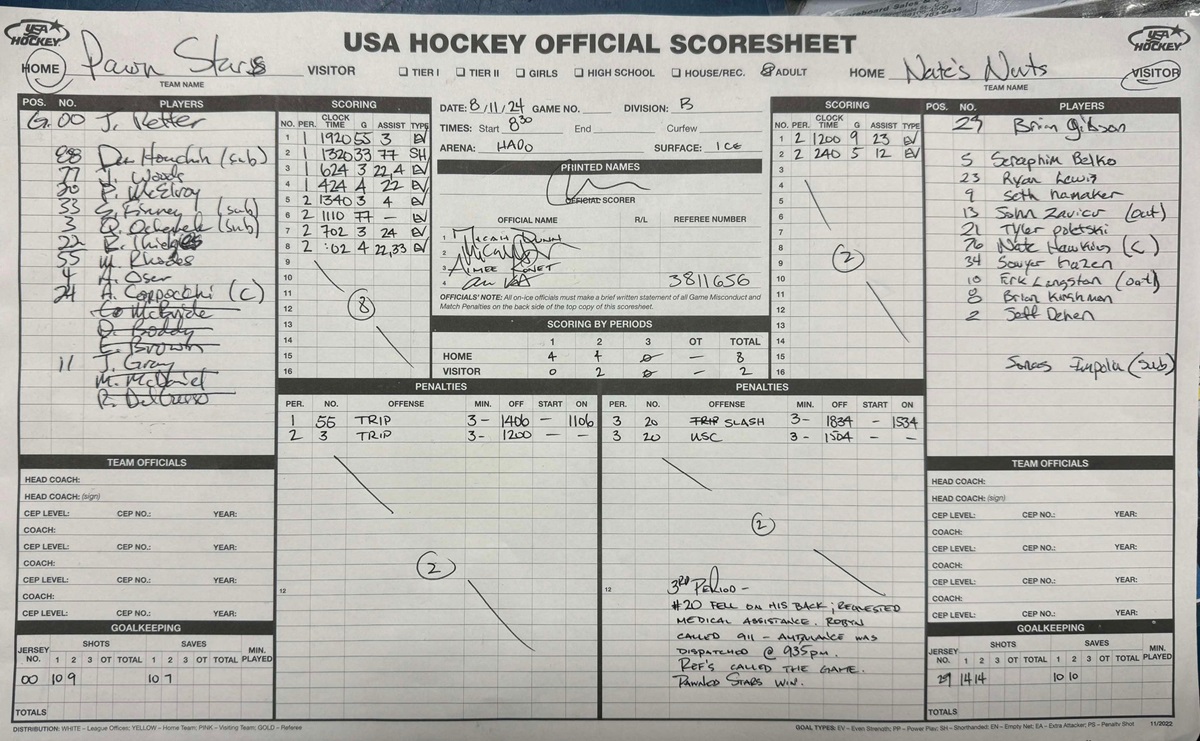 USA HOCKEY
USA HOCKEY OFFICIAL SCORESHEET
USA HOCKEY
HOME Pawn Stars VISITOR
TEAM NAME
TIER I TIER II GIRLS HIGH SCHOOL HOUSE/REC. ADULT
HOME Nate's Nuts VISITOR
TEAM NAME
POS. NO. PLAYERS
G. 00 J. Ketter
88 Dan Houchin (sub)
77 J. Woods
20 P. McElroy
33 S. Finney (sub)
3 Q. (sub)
22 R. Thielges
55 M. Rhodes
4 A. Oser
24 A. Carpocchi (C)
McBride
D. Boddy
E. Brown
11 J. Gray
M. McDaniel
R. DelGrosso
SCORING
NO. PER. CLOCK TIME G ASSIST TYPE
1 1 1920 55 3 EV
2 1 1320 33 77 SH
3 1 624 3 22,4 EV
4 1 424 4 22 EV
5 2 1340 3 4 EV
6 2 1110 77 - EV
7 2 702 3 24 EV
8 2 :02 4 22,33 EV
9
10
11
12
13
14
15
16
8
DATE: 8/11/24 GAME NO. DIVISION: B
TIMES: Start 830 End Curfew
ARENA: HADO SURFACE: ICE
PRINTED NAMES
OFFICIAL SCORER
OFFICIAL NAME R/L REFEREE NUMBER
1 Micah Dunn
2
3 Aimee
4 3811656
OFFICIALS' NOTE: All on-ice officials must make a brief written statement of all Game Misconduct and
Match Penalties on the back side of the top copy of this scoresheet.
SCORING BY PERIODS
1 2 3 OT TOTAL
HOME 4 4 0 - 8
VISITOR 0 2 0 - 2
SCORING
NO. PER. CLOCK TIME G ASSIST TYPE
1 2 1200 9 23 EV
2 2 240 5 12 EV
3
4
5
6
7
8
9
10
11
12
13
14
15
16
2
POS. NO. PLAYERS
29 Brian Gibson
5 Seraphim Belko
23 Ryan Lewis
9 Seth hamaker
13 John Zavier (out)
21 Tyler poletski
76 Nate Hawkins (C)
34 Sawyer hazen
10 Erik Langston (out)
8 Brian Kirshman
2 Jeff Dehen
(sub)
PENALTIES
PER. NO. OFFENSE MIN. OFF START ON
1 55 TRIP 3- 1406 - 1106
2 3 TRIP 3- 1200 - -
2
12
PENALTIES
PER. NO. OFFENSE MIN. OFF START ON
3 20 TRIP SLASH 3- 1834 - 1534
3 20 USC 3- 1504 - -
2
12
3RD PERIOD -
#20 FELL ON HIS BACK; REQUESTED
MEDICAL ASSISTANCE. ROBYN
CALLED 911 - AMBULANCE WAS
DISPATCHED @ 935pm.
REF'S CALLED THE GAME.
PAWNED STARS WIN.
TEAM OFFICIALS
HEAD COACH:
HEAD COACH: (sign)
CEP LEVEL: CEP NO.: YEAR:
COACH:
CEP LEVEL: CEP NO.: YEAR:
COACH:
CEP LEVEL: CEP NO.: YEAR:
COACH:
CEP LEVEL: CEP NO.: YEAR:
GOALKEEPING
SHOTS SAVES
JERSEY NO. 1 2 3 OT TOTAL 1 2 3 OT TOTAL MIN. PLAYED
00 10 9 10 7
TOTALS
TEAM OFFICIALS
HEAD COACH:
HEAD COACH: (sign)
CEP LEVEL: CEP NO.: YEAR:
COACH:
CEP LEVEL: CEP NO.: YEAR:
COACH:
CEP LEVEL: CEP NO.: YEAR:
COACH:
CEP LEVEL: CEP NO.: YEAR:
GOALKEEPING
SHOTS SAVES
JERSEY NO. 1 2 3 OT TOTAL 1 2 3 OT TOTAL MIN. PLAYED
29 14 14 10 10
TOTALS
DISTRIBUTION: WHITE – League Offices; YELLOW – Home Team; PINK – Visiting Team; GOLD – Referee
GOAL TYPES: EV – Even Strength; PP – Power Play; SH – Shorthanded; EN – Empty Net; EA – Extra Attacker; PS – Penalty Shot 11/2022